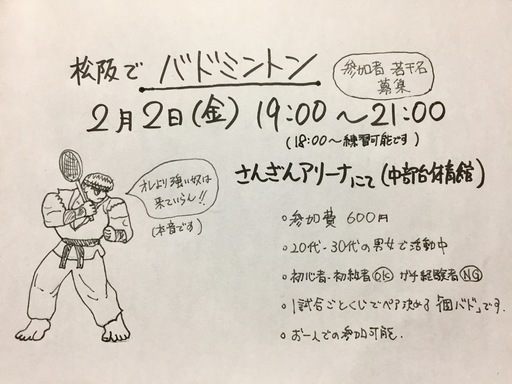 松阪で バドミントン
参加者 若干名
募集
2月2日(金) 19:00〜21:00
(18:00〜練習可能です)
さんぎんアリーナにて(中部台体育館)
オレより強い奴は
来ていらん!!
(本音です)
○参加費 600円
○20代・30代の男女で活動中
○初心者・初級者OK ガチ経験者NG
○1試合ごとくじでペア決める「個バド」です.
○お一人での参加可能.